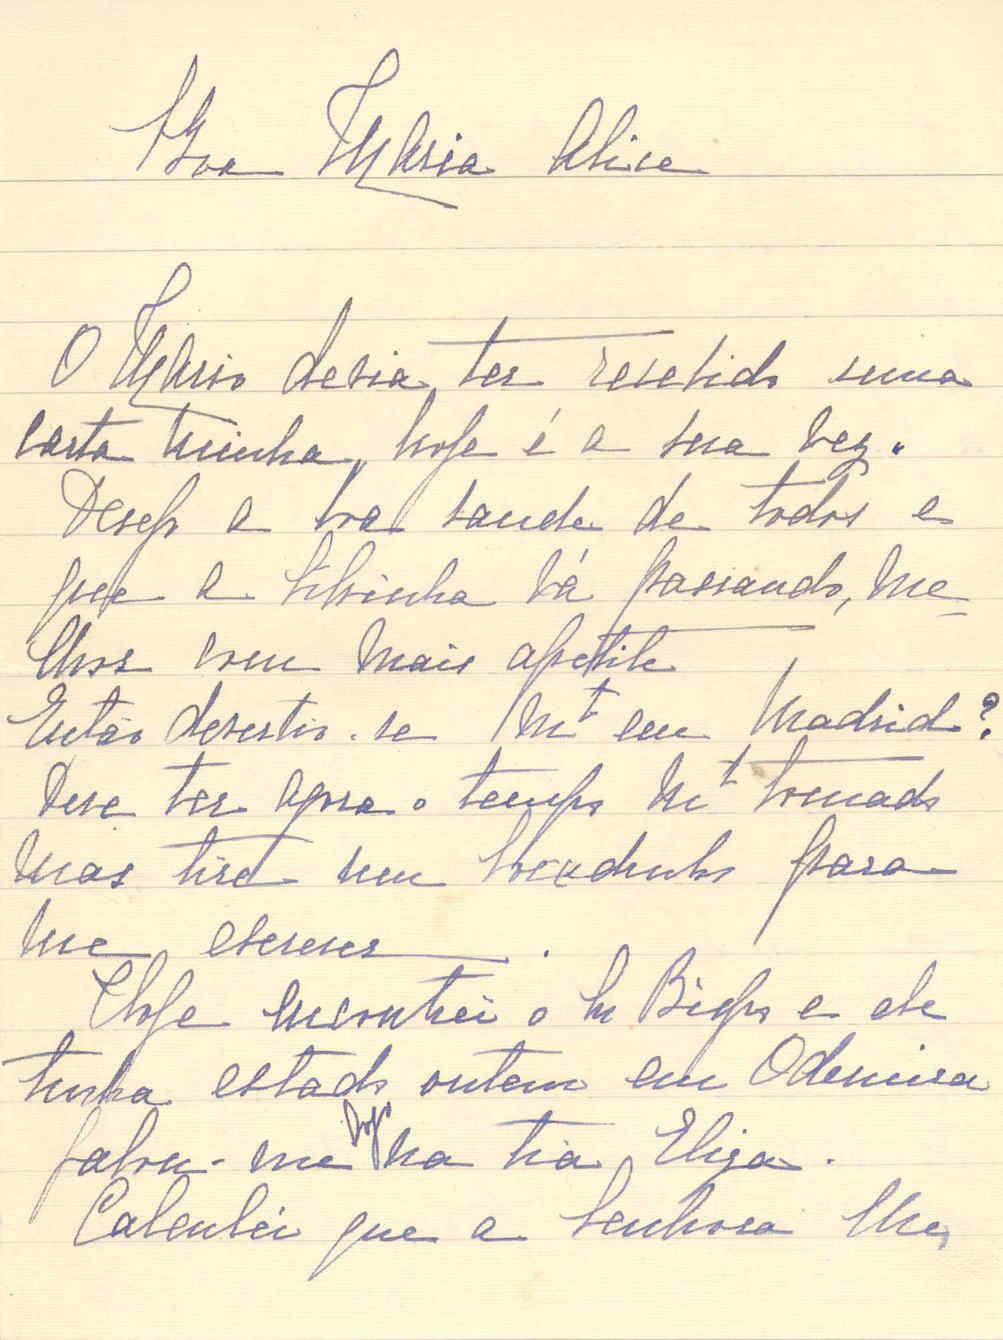 Maria Alice
O Mario devia ter recebido uma
carta minha, hoje é a sua vez.
Desejo a boa saude de todos e
que a Silvinha vá passando, me-
lhor com mais apetite
Então divertiu-se mt em Madrid?
Deve ter agora o tempo mt tomado
mas tire um bocadinho para
me escrever.
Hoje encontrei o Sr Bispo e ele
tinha estado ontem em Odemira
falou-me logo na tia Eliza.
Calculei que a senhora lhe,